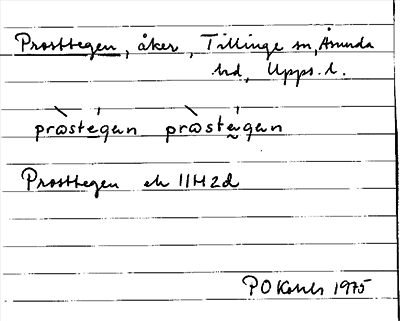 Prosttegen, åker, Tillinge sn, Åsunda
hd, Upps. l.
pròstégan pròstégan
Prosttegen ek 11H2d
P O 1975